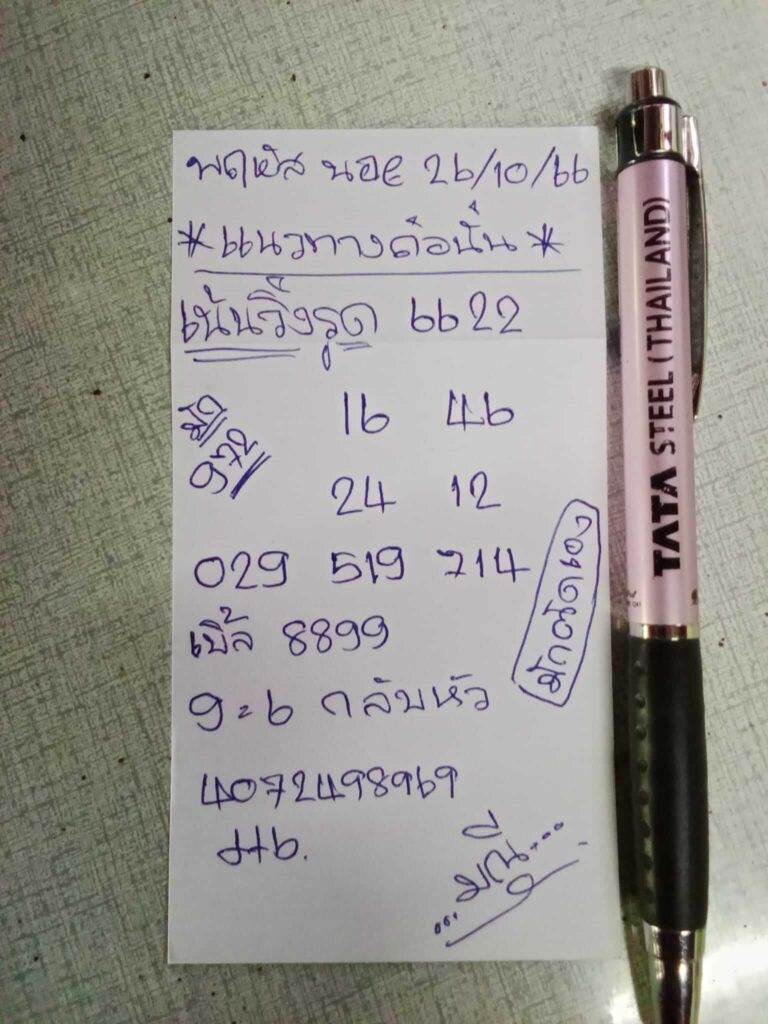 พฤหัส นอย 26/10/66
*แนวทางต่อนั่น*
เน้นวิ่งรูด 6622
มัด
972
16 46
24 12
029 519 714
เบิ้ล 8899
9=6 กลับหัว
4072498969
...มณี...
TATA STEEL (THAILAND)